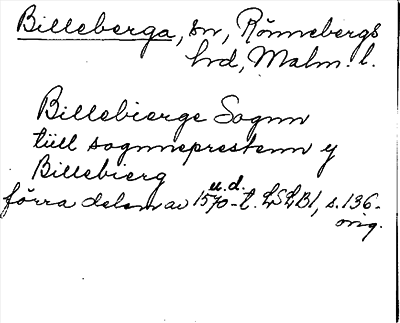 Billeberga, sn, Rönnebergs
hd, Malm. l.
Billebierge Sognn
tiill sognneprestenn y
Billebierg
u. d.
förra delen av 1570-t. LSLB1, s. 136.
orig.